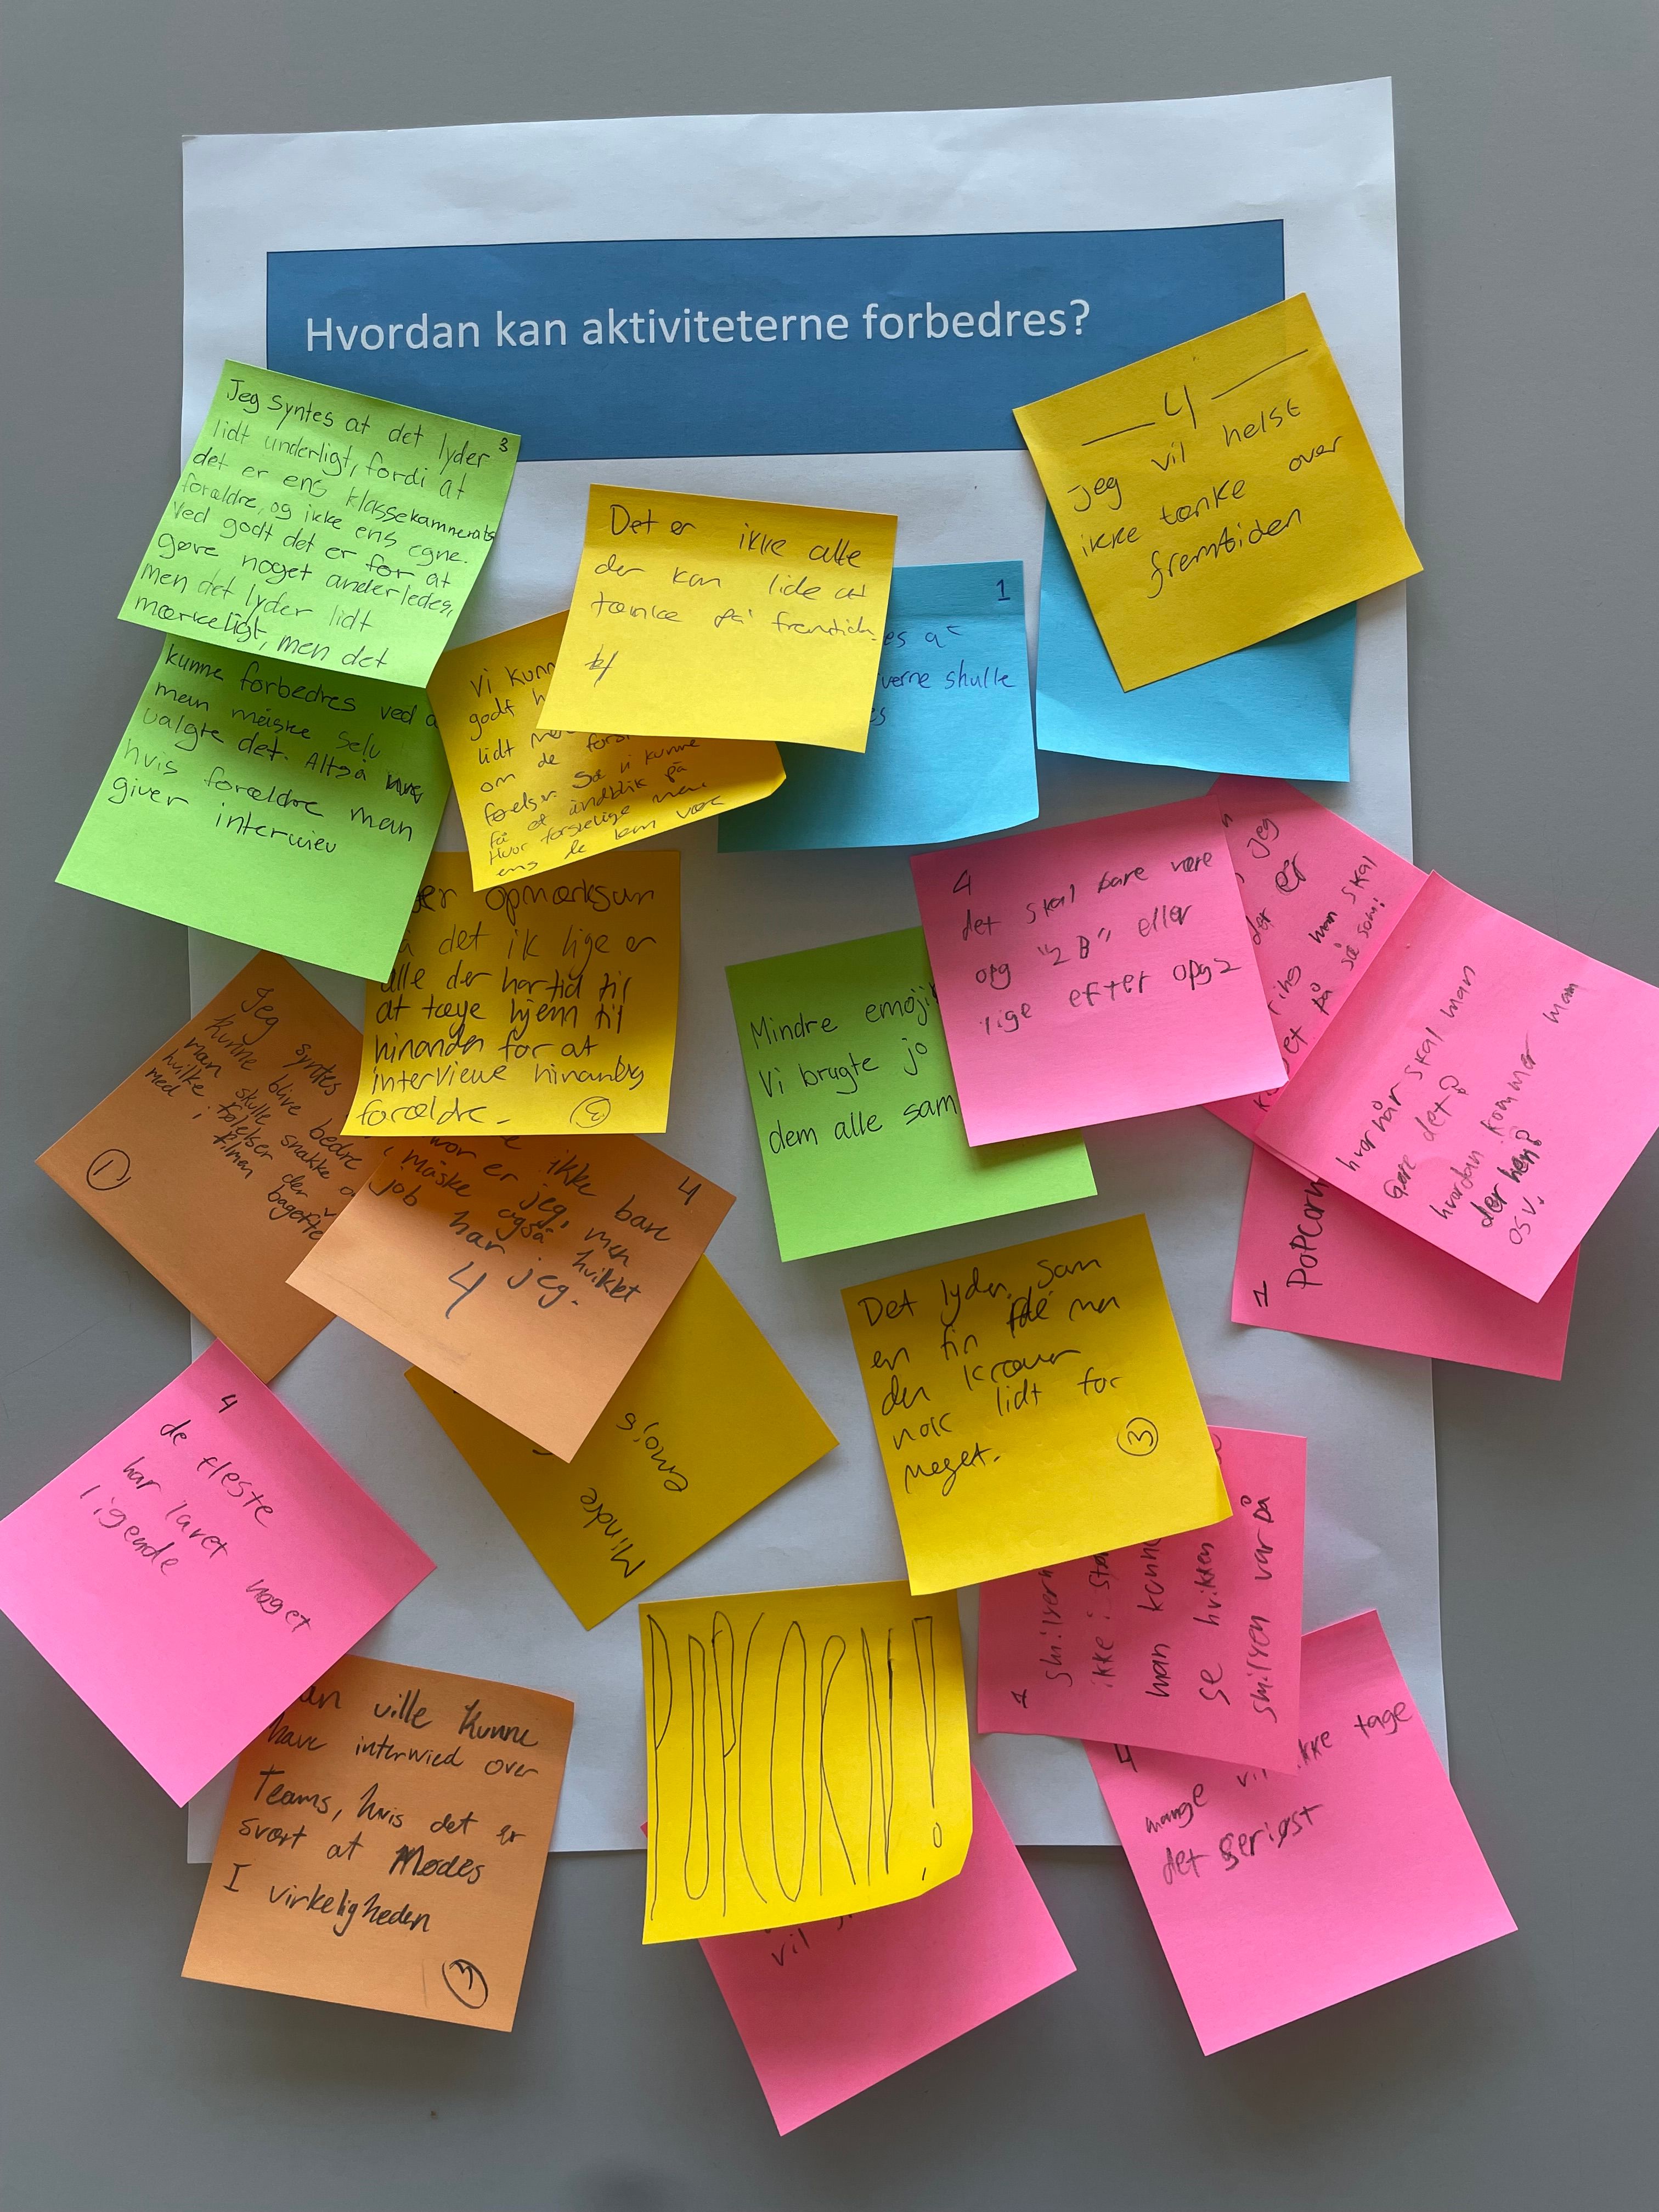 Hvordan kan aktiviteterne forbedres?
Jeg syntes at det lyder
3
lidt underligt, fordi at
det er ens klassekammerats
forældre, og ikke ens egne.
Ved godt det er for at
gøre noget anderledes,
men det lyder lidt
mærkeligt, men det
kunne forbedres ved a
man måske selv
valgte det. Altså
hvis forældre man
giver interwieu
4
jeg vil helst
ikke tænke over
fremtiden
Det er ikke alle
der kan lide at
tænke på fremtiden.
Vi kunn
godt h
lidt me
om de forsk
følelser. Så vi kunne
få et indblik på
Hvor forskelige men
ens de kan være
1
es at
verne skulle
es
er opmærksun
å det ik lige er
alle der har tid til
at tage hjem til
hinanden for at
interviewe hinandens
forældre.
Mindre emoji
Vi brugte jo
dem alle sam
4
det skal bare være
opg "2B" eller
lige efter opg2
jeg
der er
man skal
et på så som:
hvornår skal man
Gøre det?
hvordan kommer man
der hen?
osv.
1
POPCorn
Jeg syntes
kunne blive bedre
man skulle snakke o
hvilke følelser der
med i filmen bagefte
1
ikke bare
4
vor er jeg, men
måske også hvilket
job har jeg.
4
Mindre
emojis
Det lyder som
en fin idé men
den kræver
nok lidt for
meget.
3
4
de fleste
har lavet noget
ligende
an ville kunne
have interwied over
Teams, hvis det er
svært at Mødes
I virkeligheden
3
POPCORN!
vil
1
smilyern
ikke i sta
man kunne
se hvilken
smilyen var på
4
mange vil ikke tage
det seriøst